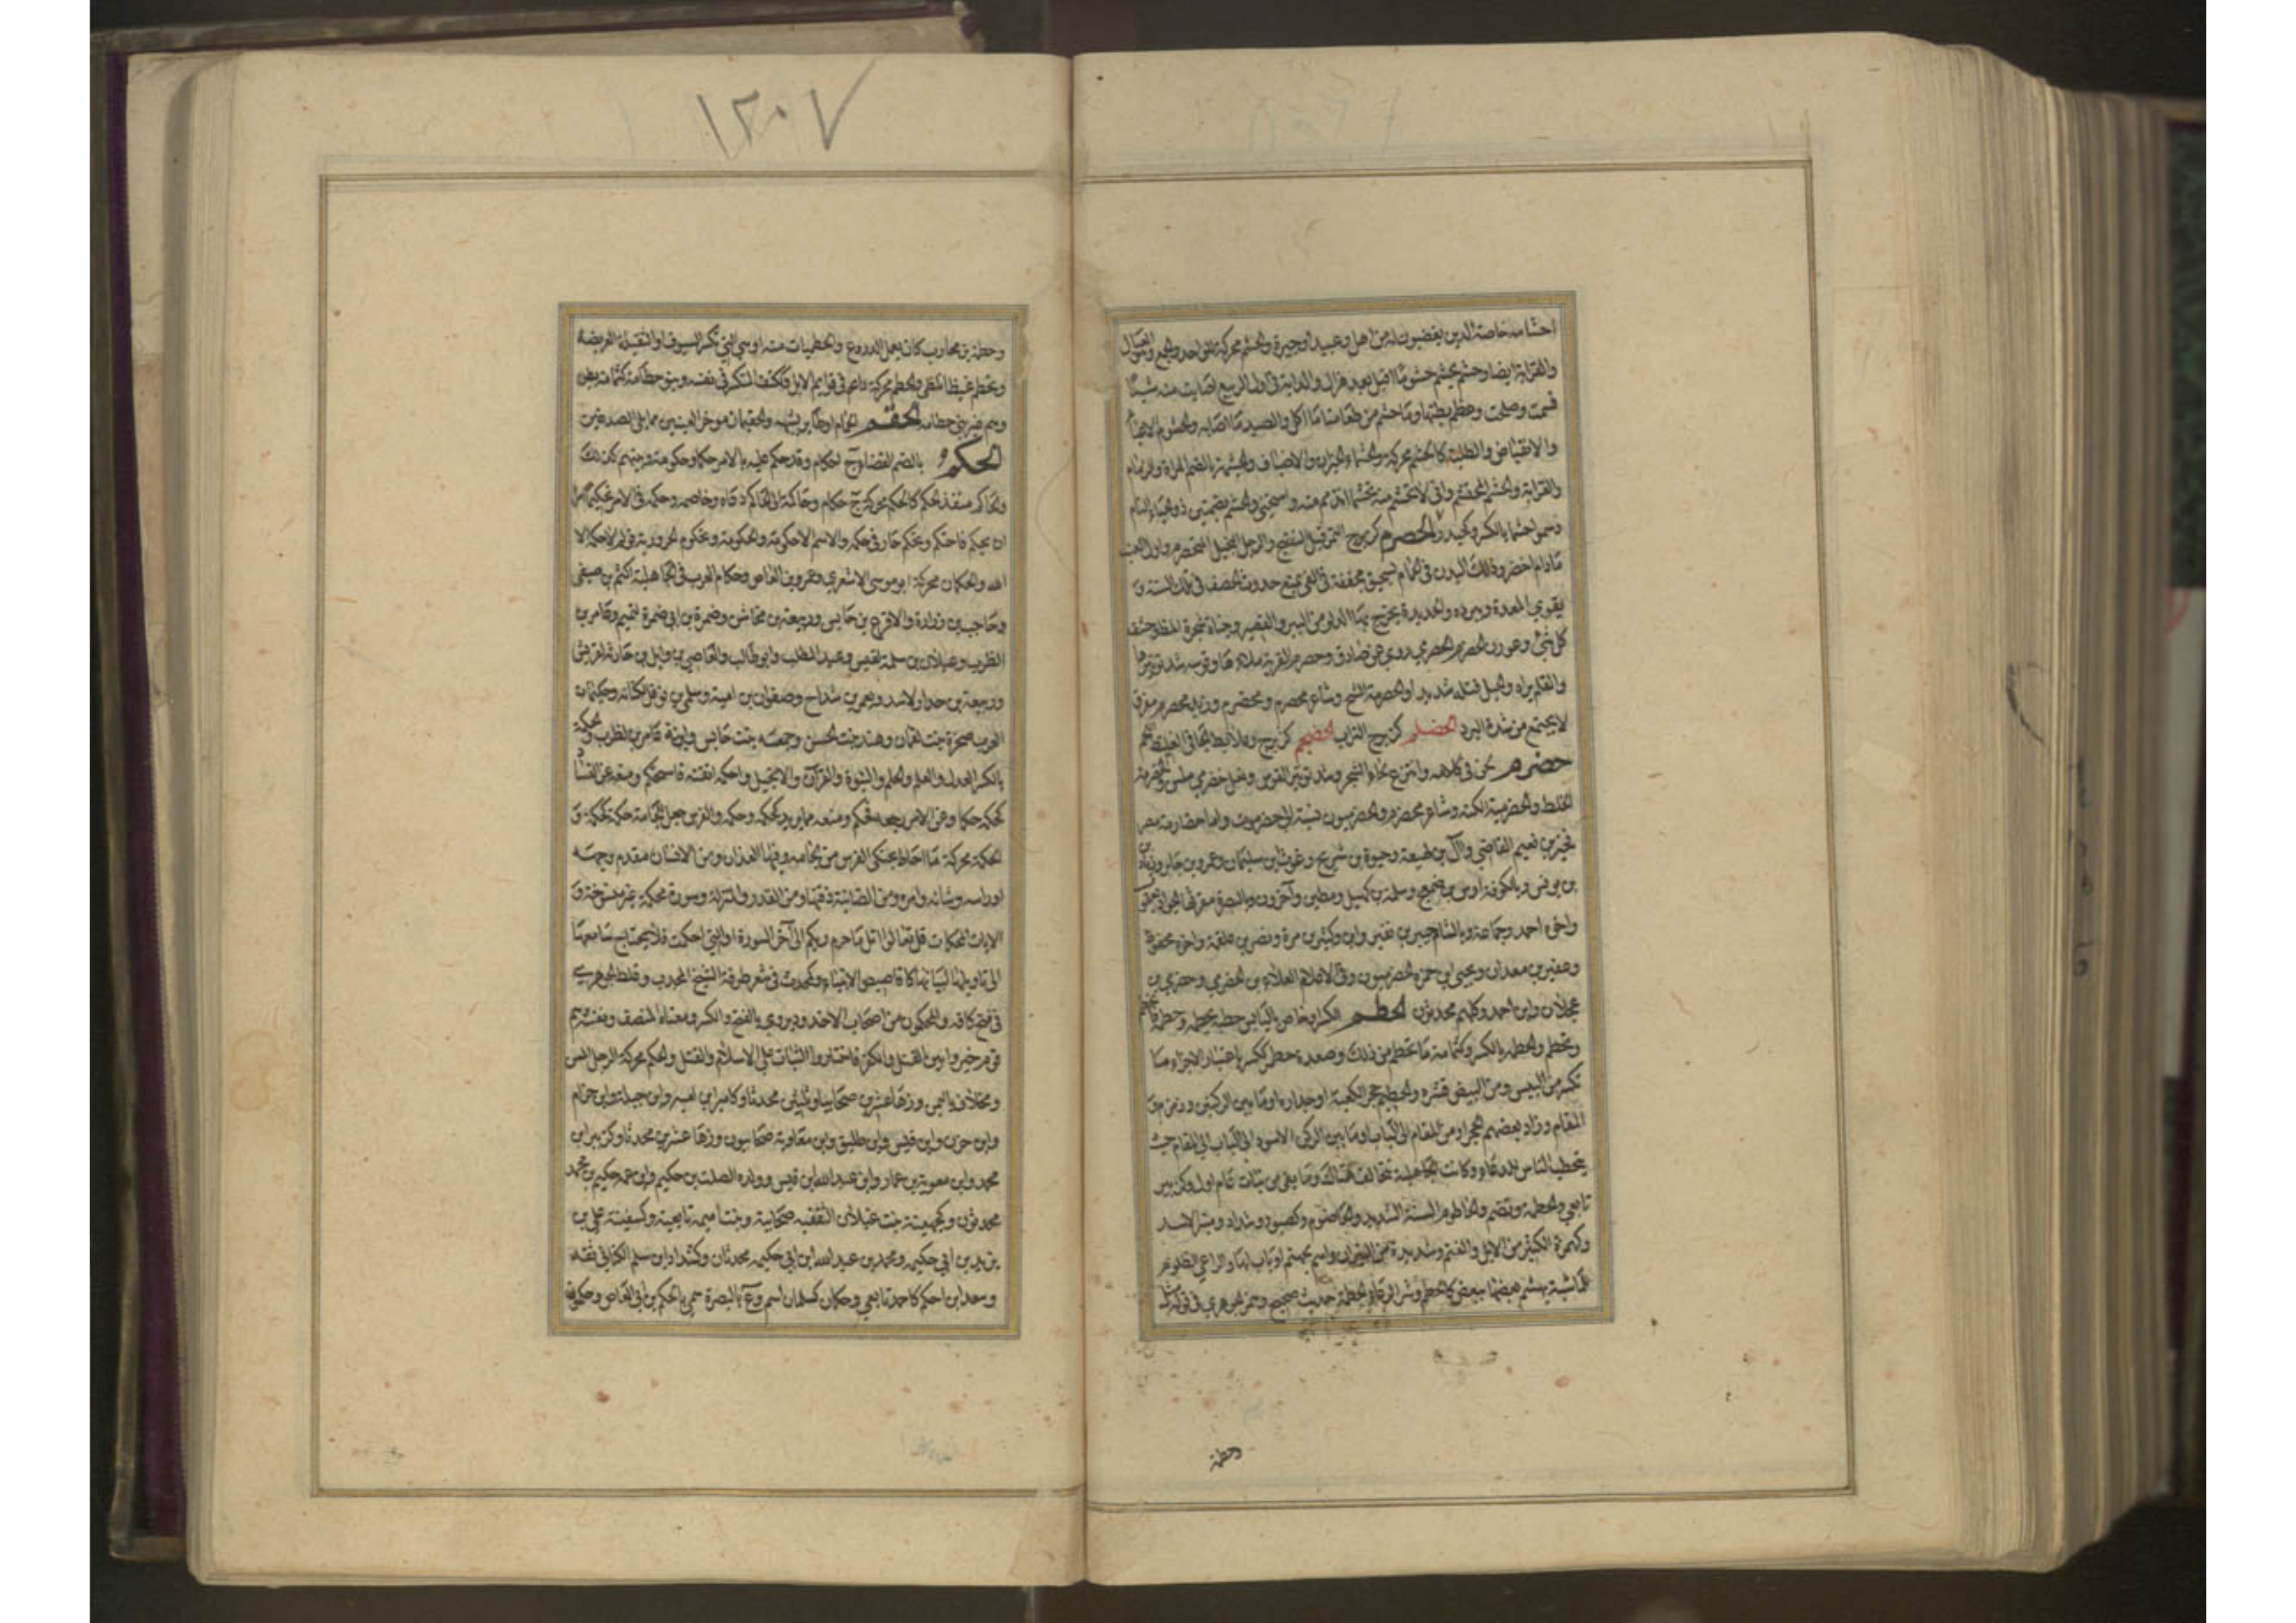 احشامه خاصة الذين يغضبون له من اهل وعبيد او جيرة والحشم محركة للواحد والجمع والعيال
والقرابة ايضا وحشم يحشم حشوما اقبل بعد هزال والدابة في اول الربيع اصابت منه شيئا
فسمنت وصلحت وعظم بطنها وما حشم من طعامنا ما اكل والصيد ما اصابه والحشوم الاعياء
والانقباض والطلبة كالحشم محركة والحشماء الجيران والاضياف والحشمة بالضم المراة والذمام
والقرابة والحشم المحتشم واني لاتحشم منه تحشما اتذمم منه واستحيي والحشم بضمتين ذوو الحياء التام
وسموا حشما بالكسر وكحيدر الحصرم كزبرج الثمر قبل النضج والرجل البخيل المتحصرم واول العنب
مادام اخضر وذلك البدن في الحمام بسحيق مجففه في الظل يمنع حدوث الحصف في تلك السنة و
يقوي المعدة ويبرده والحديدة يخرج بها الدلو من البير والقصير وجناة شجرة المظ وحشف
كل شئ وعورد الحصرم الحصرمي روى عن صادق وحصرم القربة ملاءها وقوسه شد توتيرها
والقلم براه والحبل فتله شديدا والحصرمة الشح وشاعر محصرم ومخضرم وزبد محصرم متفرق
لا يجتمع من شدة البرد الحضلم كزبرج التراب الحضجم كزبرج وعلابط الجافي الغليظ اللحم
حضرم لحن في كلامه وانتزع لحاء الشجر وشد توتير القوس ونعل حضرمي ملسن والحضرمة
الخلط والحضرمية اللكنة وشاعر محضرم والحضرميون نسبة الى حضرموت واما حضارمة مصر
فخير بن نعيم القاضي وآل بن لهيعة وحيوة بن شريح وغوث بن سليمان وعمرو بن جابر وزياد
بن يونس وبالكوفة اوس بن ضمعج وسلمة بن كهيل ومطين وآخرون وبالبصرة مقرئها يعقوب
واخوه احمد وجماعة وبالشام جبير بن نفير وابن وكثير بن مرة ونصر بن علقمة واخوه محفوظ
وعفير بن معدان ويحيى بن حمزة الحضرميون وفي الاعلام العلاء بن الحضرمي وحضرمي بن
عجلان وابن احمد وكلهم محدثون الحطم الكسر او خاص باليابس حطمه يحطمه وحطمه فانحطم
وتحطم والحطمة بالكسر وكثمامة ما تحطم من ذلك وصعدة حطم ككسر باعتبار الاجزاء وما
تكسر من اليبيس ومن البيض قشره والحطيم حجر الكعبة او جداره او ما بين الركن وزمزم و
المقام وزاد بعضهم الحجر او من المقام الى الباب او ما بين الركن الاسود الى الباب الى المقام حيث
يتحطم الناس للدعاء وكانت الجاهلية تتحالف هناك وما بقي من نبات عام اول وكزبير
تابعي والحطمة وتضم والحاطوم السنة الشديدة والحاطوم وكصبور وشداد ومنبر الاسد
وكهمزة الكثير من الابل والغنم وشديدة من النيران واسم لجهنم او باب لها والراعي الظلوم
للماشية يهشم بعضها ببعض كالحطم وشر الرعاء الحطمة حديث صحيح ووهم الجوهري في قوله مثل
وحطمة
١٢٠٧
وحطمة بن محارب كان يعمل الدروع والحطميات منه او هي التي تكسر السيوف او الثقيلة العريضة
وتحطم غيظا تلظى والحطم محركة داء في قوايم الابل وككتف المتكسر في نفسه وبنو حطامة كثمامة بطن
وهم غير بني خطامه الحقم الحمام او طاير يشبهه والحقيمان موخر العينين مما يلي الصدغين
الحكم بالضم القضا ج احكام وقد حكم عليه بالامر حكما وحكومة وبينهم كذلك
والحاكم منفذ الحكم كالحكم محركة ج حكام وحاكمه الى الحاكم دعاه وخاصمه وحكمه في الامر تحكيما امره
ان يحكم فاحتكم وتحكم جار فيه حكمه والاسم الاحكومة والحكومة وتحكم الحرورية قولهم لا حكم الا
لله والحكمان محركة ابو موسى الاشعري وعمرو بن العاص وحكام العرب في الجاهلية اكثم بن صيفي
وحاجب بن زرارة والاقرع بن حابس وربيعة بن مخاشن وضمرة بن ابي ضمرة لتميم وعامر بن
الظرب وغيلان بن سلمة لقيس وعبد المطلب وابو طالب والعاصي بن وايل بن حارثة لقريش
وربيعة بن حذار لاسد ويعمر بن شداخ وصفوان بن امية وسلمى بن نوفل لكنانة وحكيمات
العرب صحرة بنت لقمان وهند بنت الحسن وجمعة بنت حابس وابنة عامر بن الظرب والحكمة
بالكسر العدل والعلم والحلم والنبوة والقرآن والانجيل واحكمه اتقنه فاستحكم ومنعه عن الفساد
كحكمه حكما وعن الامر رجعه فحكم ومنعه مما يريد كحكمه وحكمه والفرس جعل للجامه حكمة كحكمه و
الحكمة محركة ما احاط بحنكي الفرس من لجامه وفيها العذاران ومن الانسان مقدم وجهه
او راسه وشانه وامره ومن الضائنة ذقنها ومن القدر والمنزلة وسورة محكمة غير منسوخة و
الايات المحكمات قل تعالوا اتل ما حرم ربكم الى آخر السورة او التي احكمت فلا يحتاج سامعها
الى تاويلها لبيانها كاقاصيص الانبياء وكمحدث في شعر طرفة الشيخ المجرب وغلط الجوهري
في فتح كافه والمحكمون من اصحاب الاخدود يروى بالفتح والكسر ومعناه المنصف من نفسه هم
قوم خيروا بين القتل والكفر فاختاروا الثبات على الاسلام والقتل والحكم محركة الرجل المسن
ومخلاف باليمن وزهاء عشرين صحابيا وثلثين محدثا وكامير ابن امية وابن جبلة وابن حزام
وابن حزن وابن قيس وابن طليق وابن معاوية صحابيون وزها عشرين محدثا وكزبير ابن
محمد وابن معوية بن عمار وابن عبد الله بن قيس وولده الصلت بن حكيم وابن عمه حكيم بن محمد
محدثون وكجهينة بنت غيلان الثقفية صحابية وبنت اميمة تابعية وكسفينة علي بن
يزيد بن ابي حكيمة ومحمد بن عبد الله بن ابي حكيمة محدثان وكشداد ابن سلم الكناني ثقة
وسعد بن احكم كاحمد تابعي وحكمان كسلمان اسم وع بالبصرة سمي بالحكم بن ابي العاص وحكمون